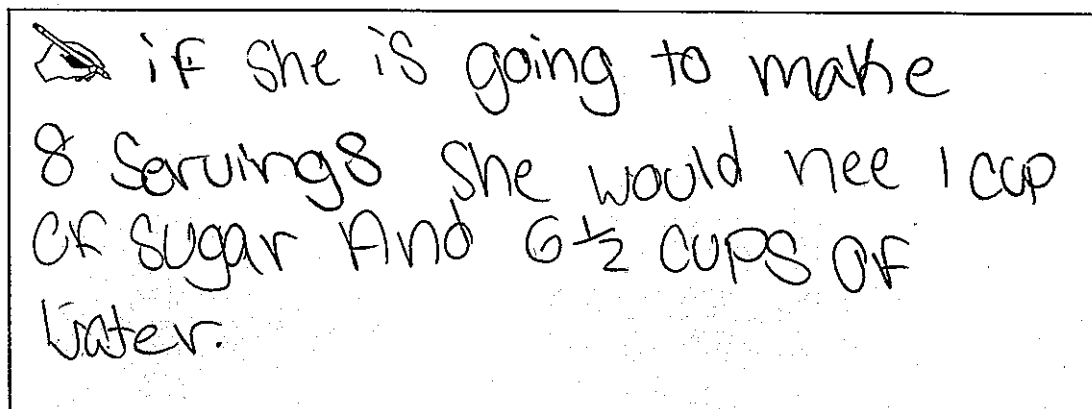 if she is going to make
8 Servings She would nee 1 cup
of sugar And 6 1/2 cups of
water.